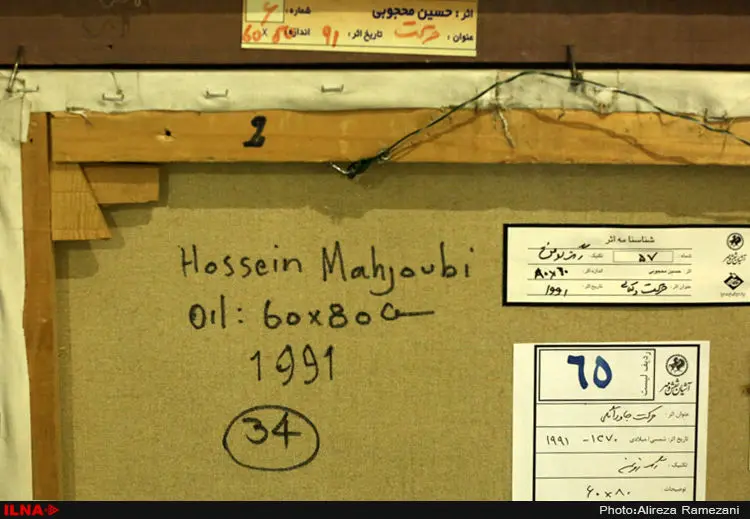 اثر : حسین محجوبی شماره: ۶
عنوان : حرکت تاریخ اثر : ۹۱ اندازه
2
Hossein Mahjoubi
Oil: 60x80
1991
34
شناسنامه اثر
شماره : ۵۷ تکنیک : رنگ روغن
اثر : حسین محجوبی اندازه اثر : ۸۰x۶۰
عنوان اثر : حرکت تاریخ اثر : ۱۹۹۱
ردیف لیست
۶۵
عنوان اثر : حرکت
تاریخ اثر: شمسی/میلادی ۱۳۷۰ - ۱۹۹۱
تکنیک : رنگ روغن
توضیحات : ۶۰x۸۰
ILNA
Photo:Alireza Ramezani